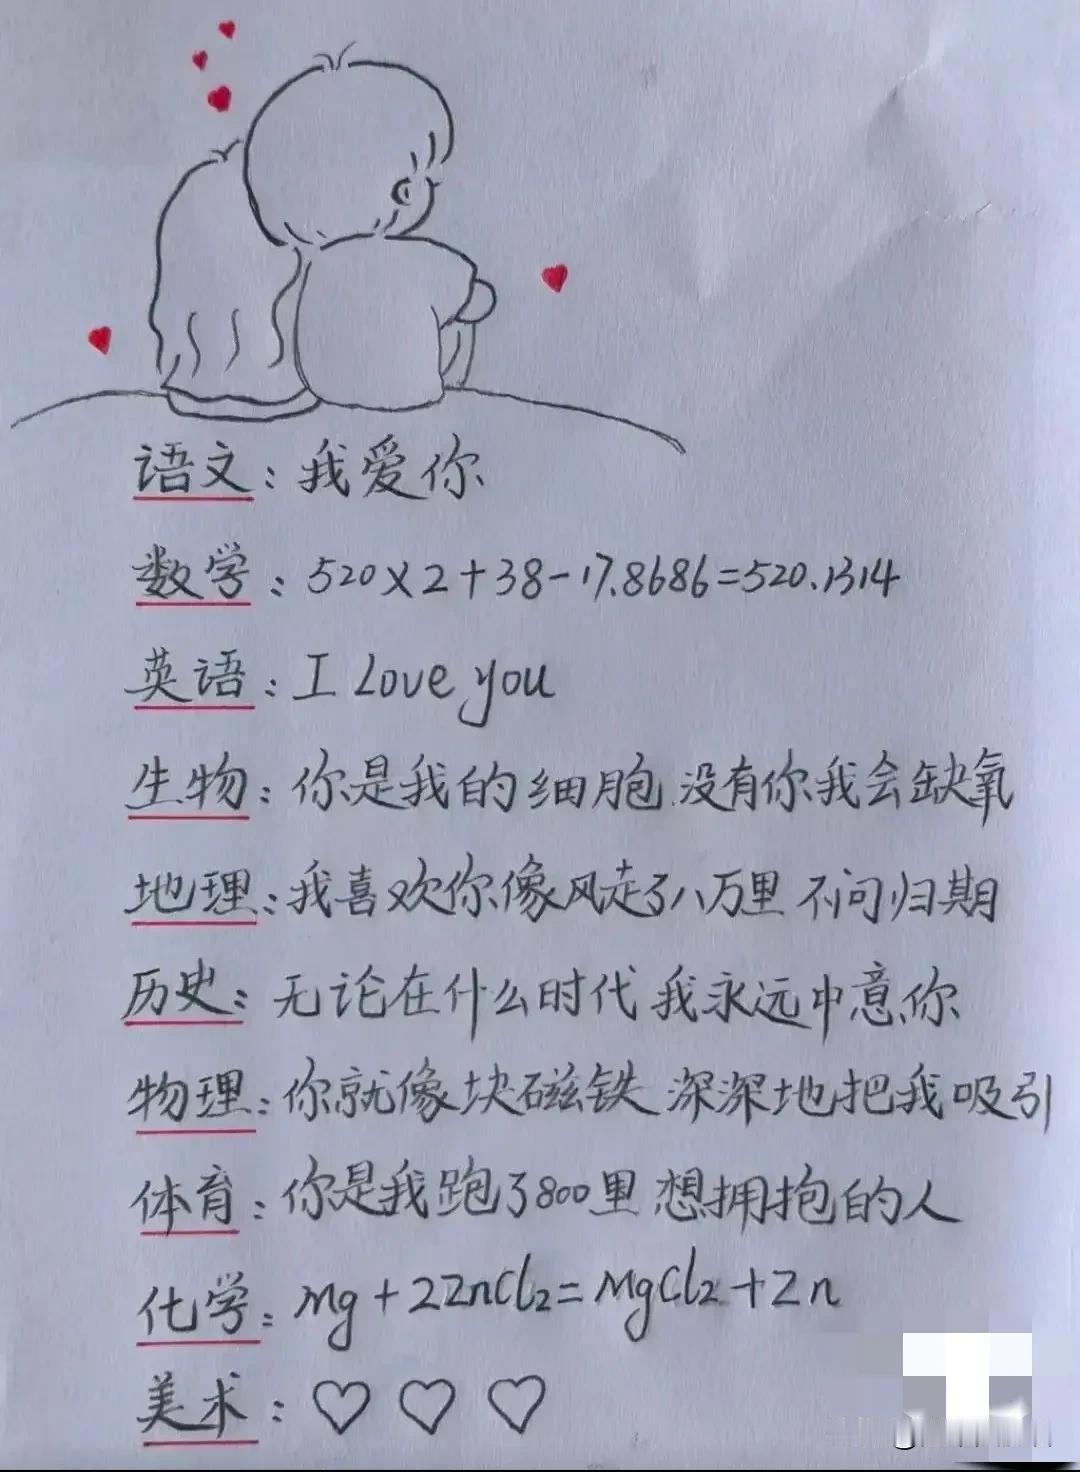 语文：我爱你
数学：520×2+38-17.8686=520.1314
英语：I Love you
生物：你是我的细胞 没有你我会缺氧
地理：我喜欢你像风走了八万里 不问归期
历史：无论在什么时代 我永远中意你
物理：你就像块磁铁 深深地把我吸引
体育：你是我跑了800里 想拥抱的人
化学：Mg+2ZnCl₂=MgCl₂+Zn
美术：♡ ♡ ♡